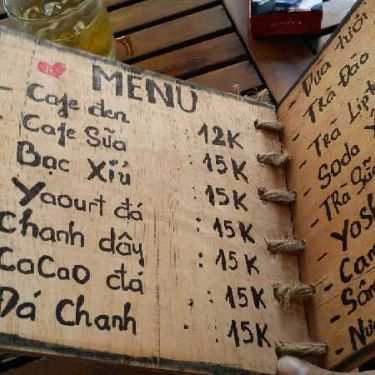 MENU
- Cafe đen : 12K
Cafe Sữa : 15K
Bạc Xíu : 15K
Yaourt đá : 15K
Chanh dây : 15K
CaCao đá : 15K
Đá Chanh : 15K
- Dừa tươi
- Trà Đào
- Tra Lipt
- Soda
- TRà Sữa
- Yosh
- Cam
- Sâm
- Nư